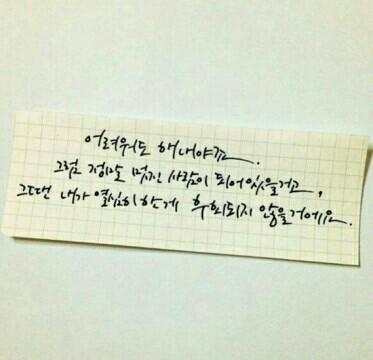 어려워도 해내야죠.
그럼 정말 멋진 사람이 되어있을거고,
그땐 내가 열심히 한게 후회되지 않을거에요.